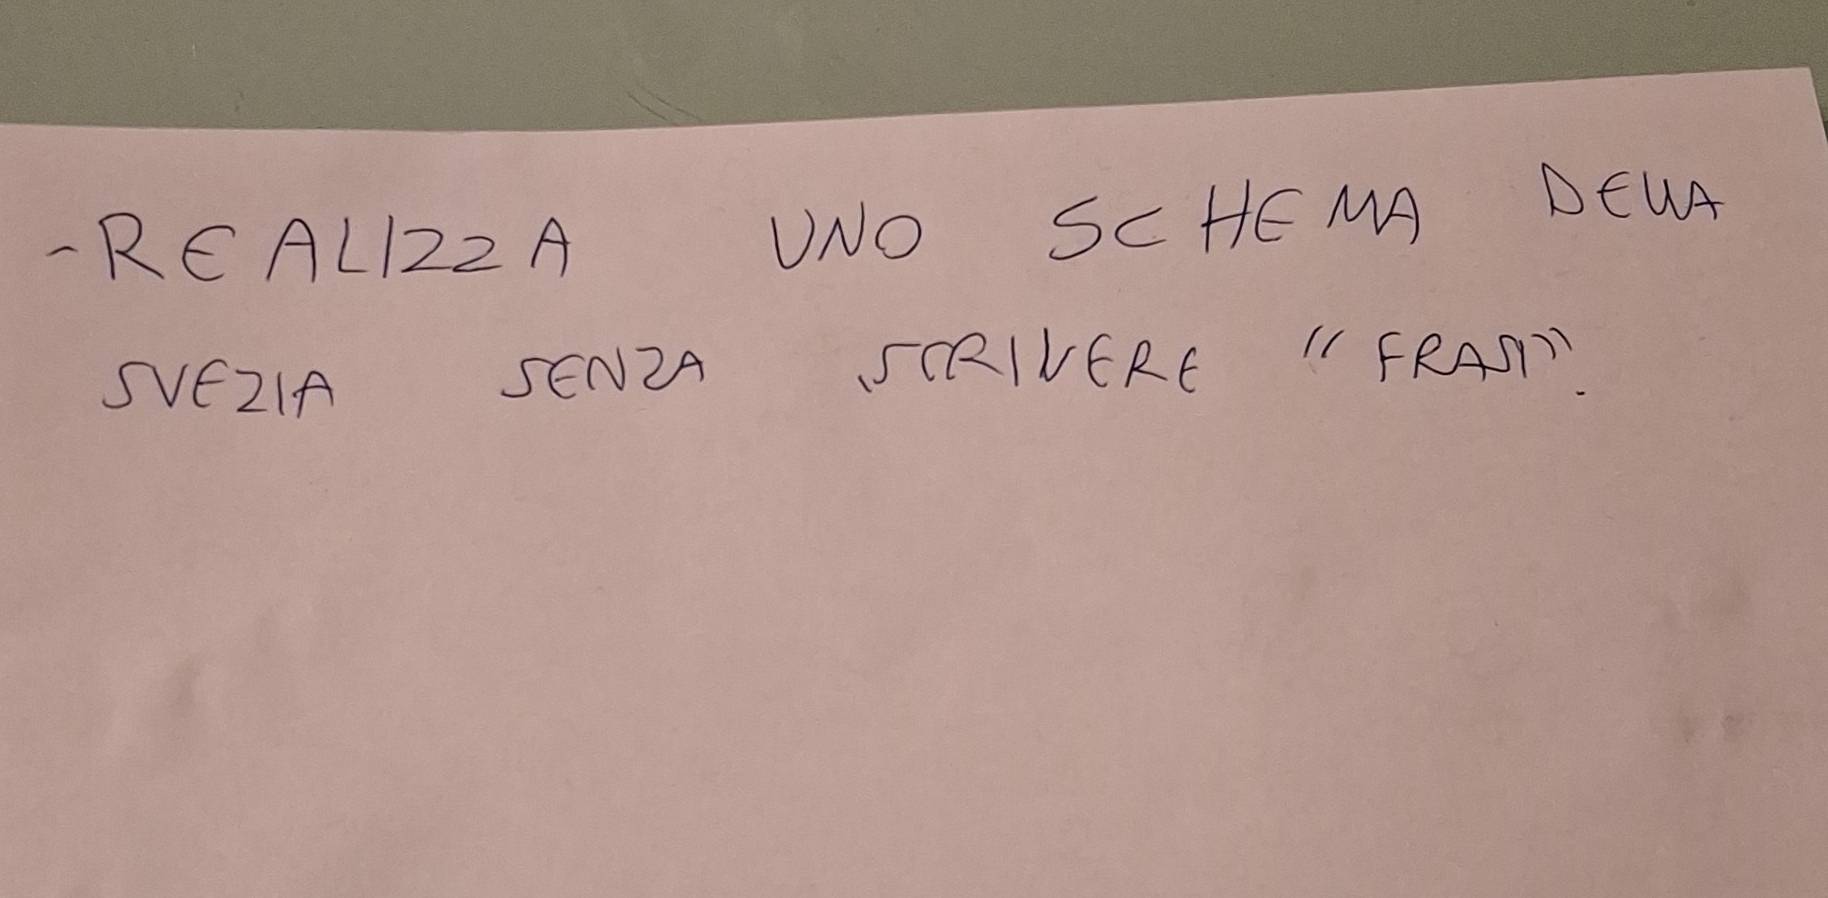 - REALIZZA UNO SCHEMA DELLA
SVEZIA SENZA SCRIVERE "FRASI".